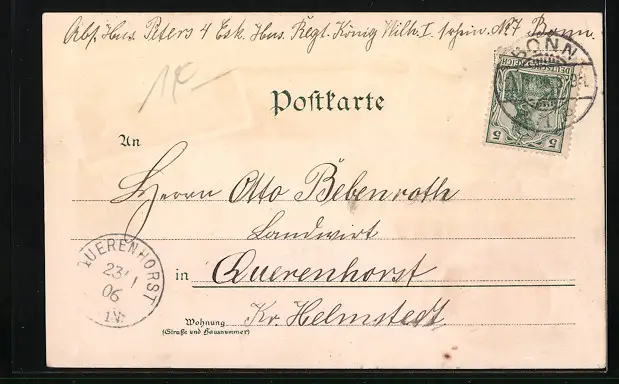 Abs. Hus. Peters 4 Esk. Hus. Regt. König Wilh. I. 1. rhein. No 7 Bonn.
BONN
DEUTSCHES REICH
5 5
1 K
Postkarte
An
Herrn Otto Bebenroth
Landwirt
in Querenhorst
Kr. Helmstedt
Wohnung
(Straße und Hausnummer)
QUERENHORST
23/1
06
IV.